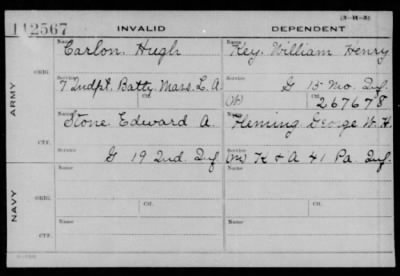 (3-H-3)
112567 INVALID DEPENDENT
Name Name
Carlon, Hugh Key, William Henry
ORIG. Service Service
7 Indpt. Batty Mass. L.A. G 15 Mo. Inf.
Ctf. (W) Ctf. 267678
ARMY
Name Name
Stone, Edward A. Fleming, George W. H.
CTF. Service Service
G 19 Ind. Inf. K & A 41 Pa. Inf.
NAVY
Name Name
ORIG.
Ctf. Ctf.
Name Name
CTF.